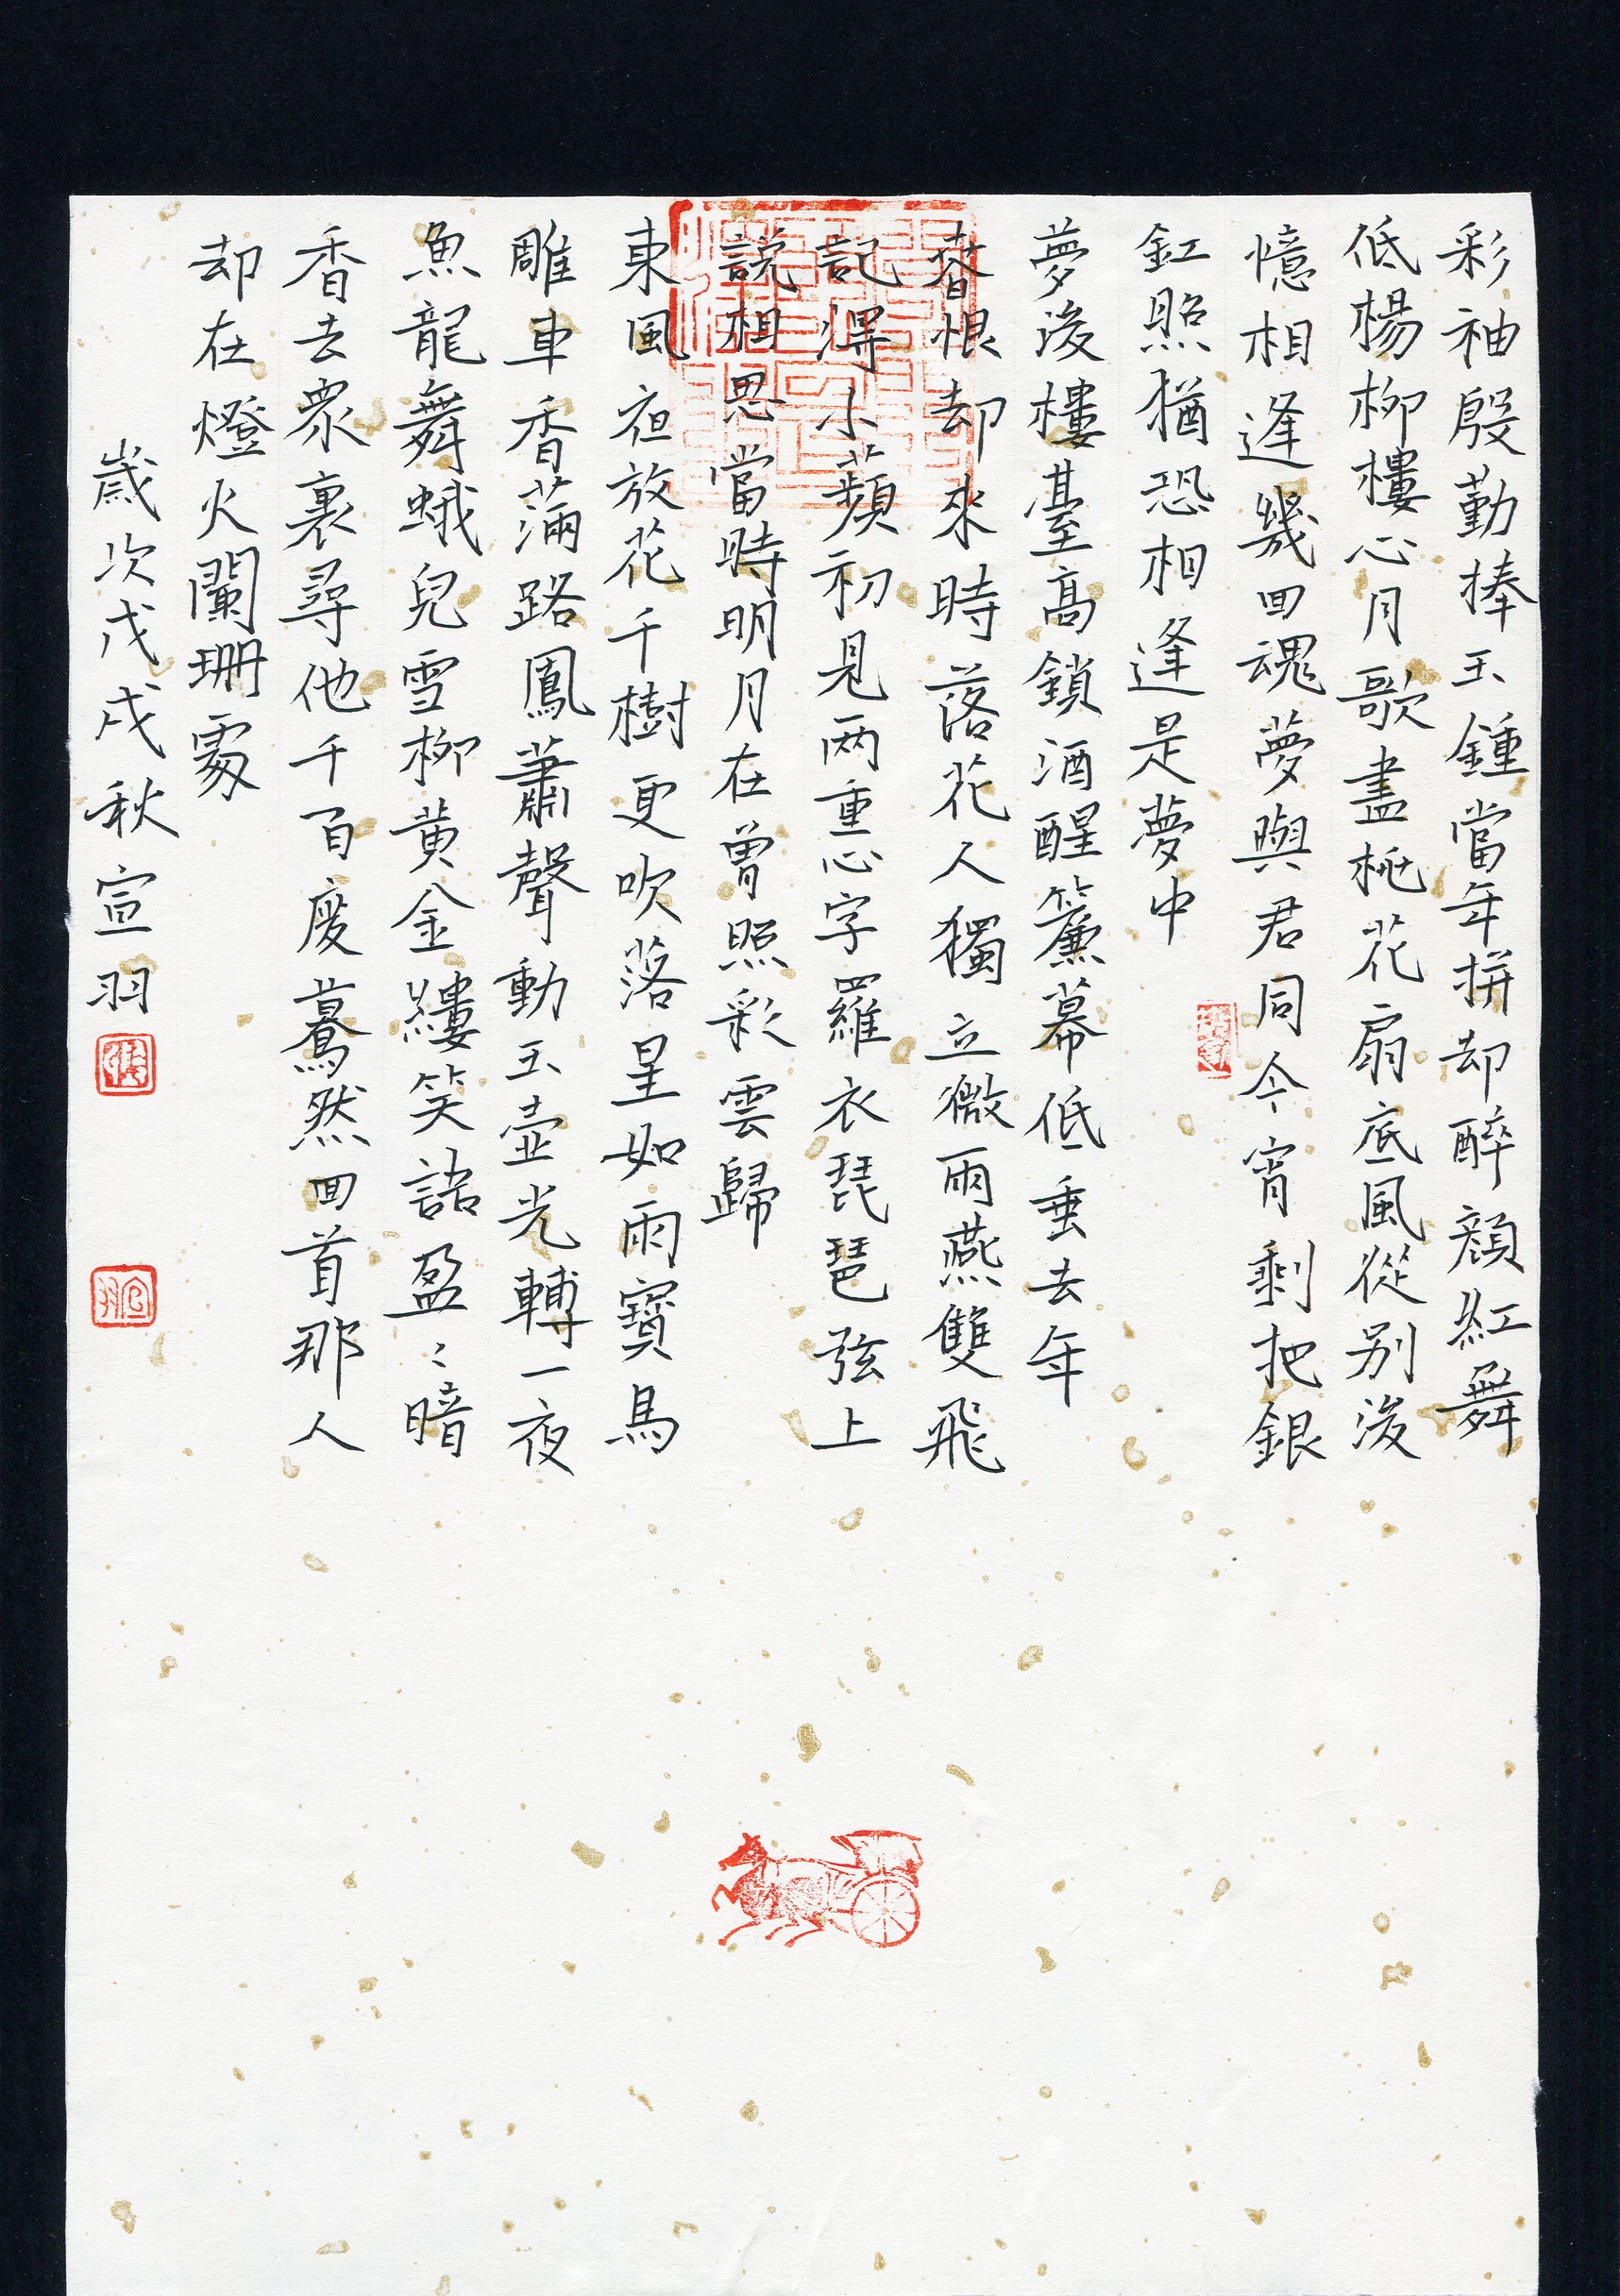 彩袖殷勤捧玉鍾當年拚却醉顏紅舞
低楊柳樓心月歌盡桃花扇底風從別後
憶相逢幾回魂夢與君同今宵剩把銀
釭照猶恐相逢是夢中
夢後樓臺高鎖酒醒簾幕低垂去年
春恨却來時落花人獨立微雨燕雙飛
記得小蘋初見兩重心字羅衣琵琶弦上
說相思當時明月在曾照彩雲歸
東風夜放花千樹更吹落星如雨寶馬
雕車香滿路鳳蕭聲動玉壺光轉一夜
魚龍舞蛾兒雪柳黃金縷笑語盈〻暗
香去眾裏尋他千百度驀然回首那人
却在燈火闌珊處
歲次戊戌秋宣羽